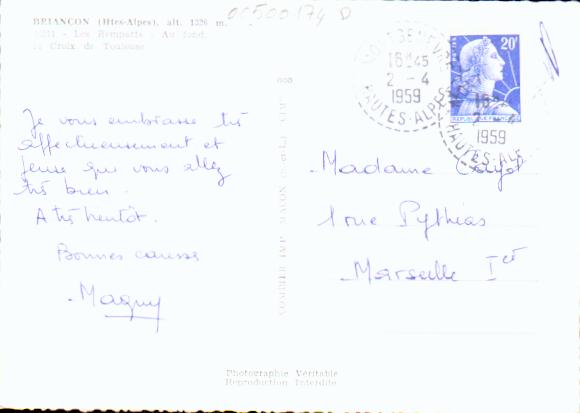 OC500174 D
BRIANÇON (Htes-Alpes), alt. 1326 m.
- Les Remparts - Au fond,
la Croix de Toulouse
Je vous embrasse très
affectueusement et
pense que vous allez
très bien.
A très bientôt.
Bonnes caresses
Maguy
16H45
2-4
1959
HAUTES-ALPES
20F
REPUBLIQUE FRANÇAISE
2-4
1959
HAUTES-ALPES
Madame
1 rue Pythéas
Marseille Ier
Photographie Véritable
Reproduction Interdite